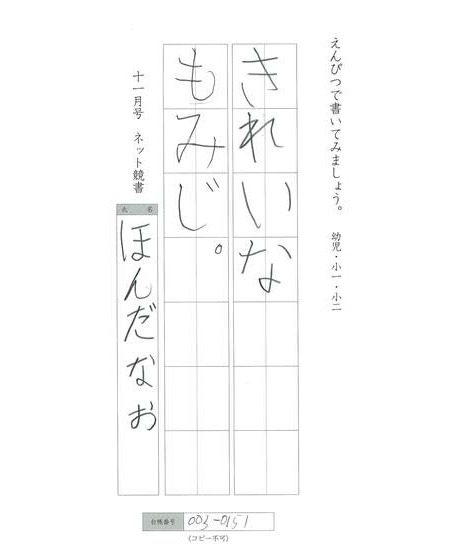 えんぴつで書いてみましょう。 幼児・小一・小二
きれいな
もみじ。
十一月号 ネット競書
氏名
ほんだなお
台帳番号 003-0151
(コピー不可)